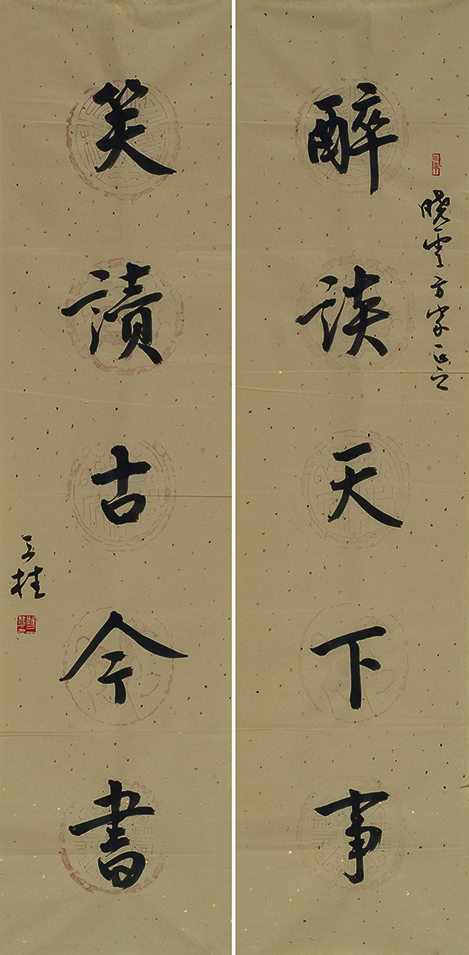 晓雲方家正之
醉談天下事
笑讀古今書
桂